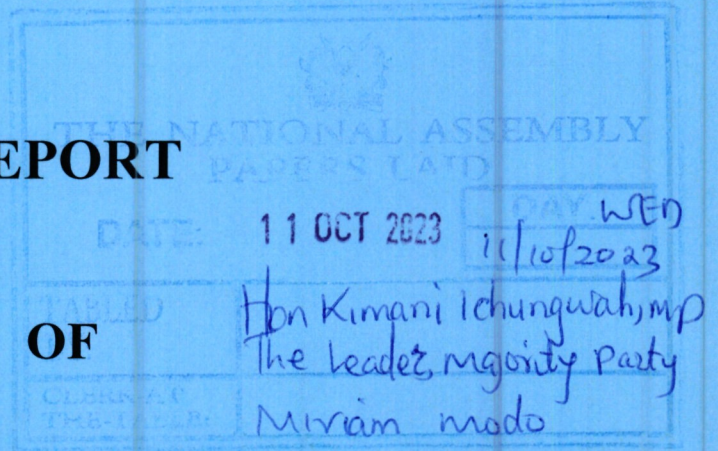 THE NATIONAL ASSEMBLY
PAPERS LAID
EPORT
DATE: 11 OCT 2023 DAY. WED
11/10/2023
TABLED Hon Kimani Ichungwah, MP
OF The Leader, Majority Party
CLERK AT
THE-TABLE: Miriam Modo